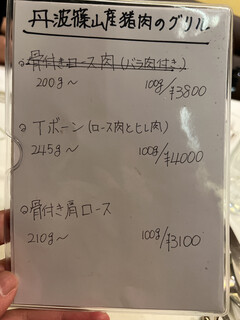 丹波篠山産猪肉のグリル
◎骨付きロース肉(バラ肉付き)
200g〜 100g/¥3800
◎Tボーン(ロース肉とヒレ肉)
245g〜 100g/¥4000
◎骨付き肩ロース
210g〜 100g/¥3100